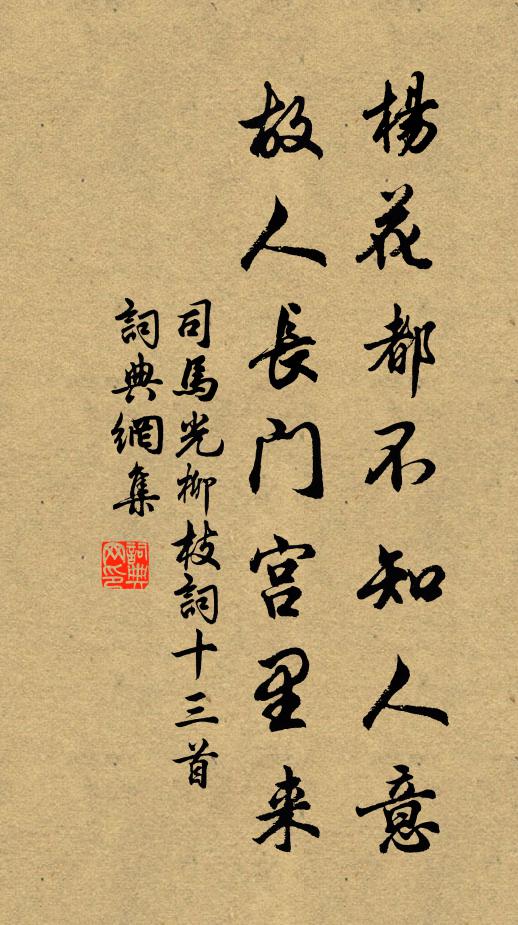 楊花都不知人意
故人長门宫里来
司馬光柳枝詞十三首
詞典網集
詞典網印